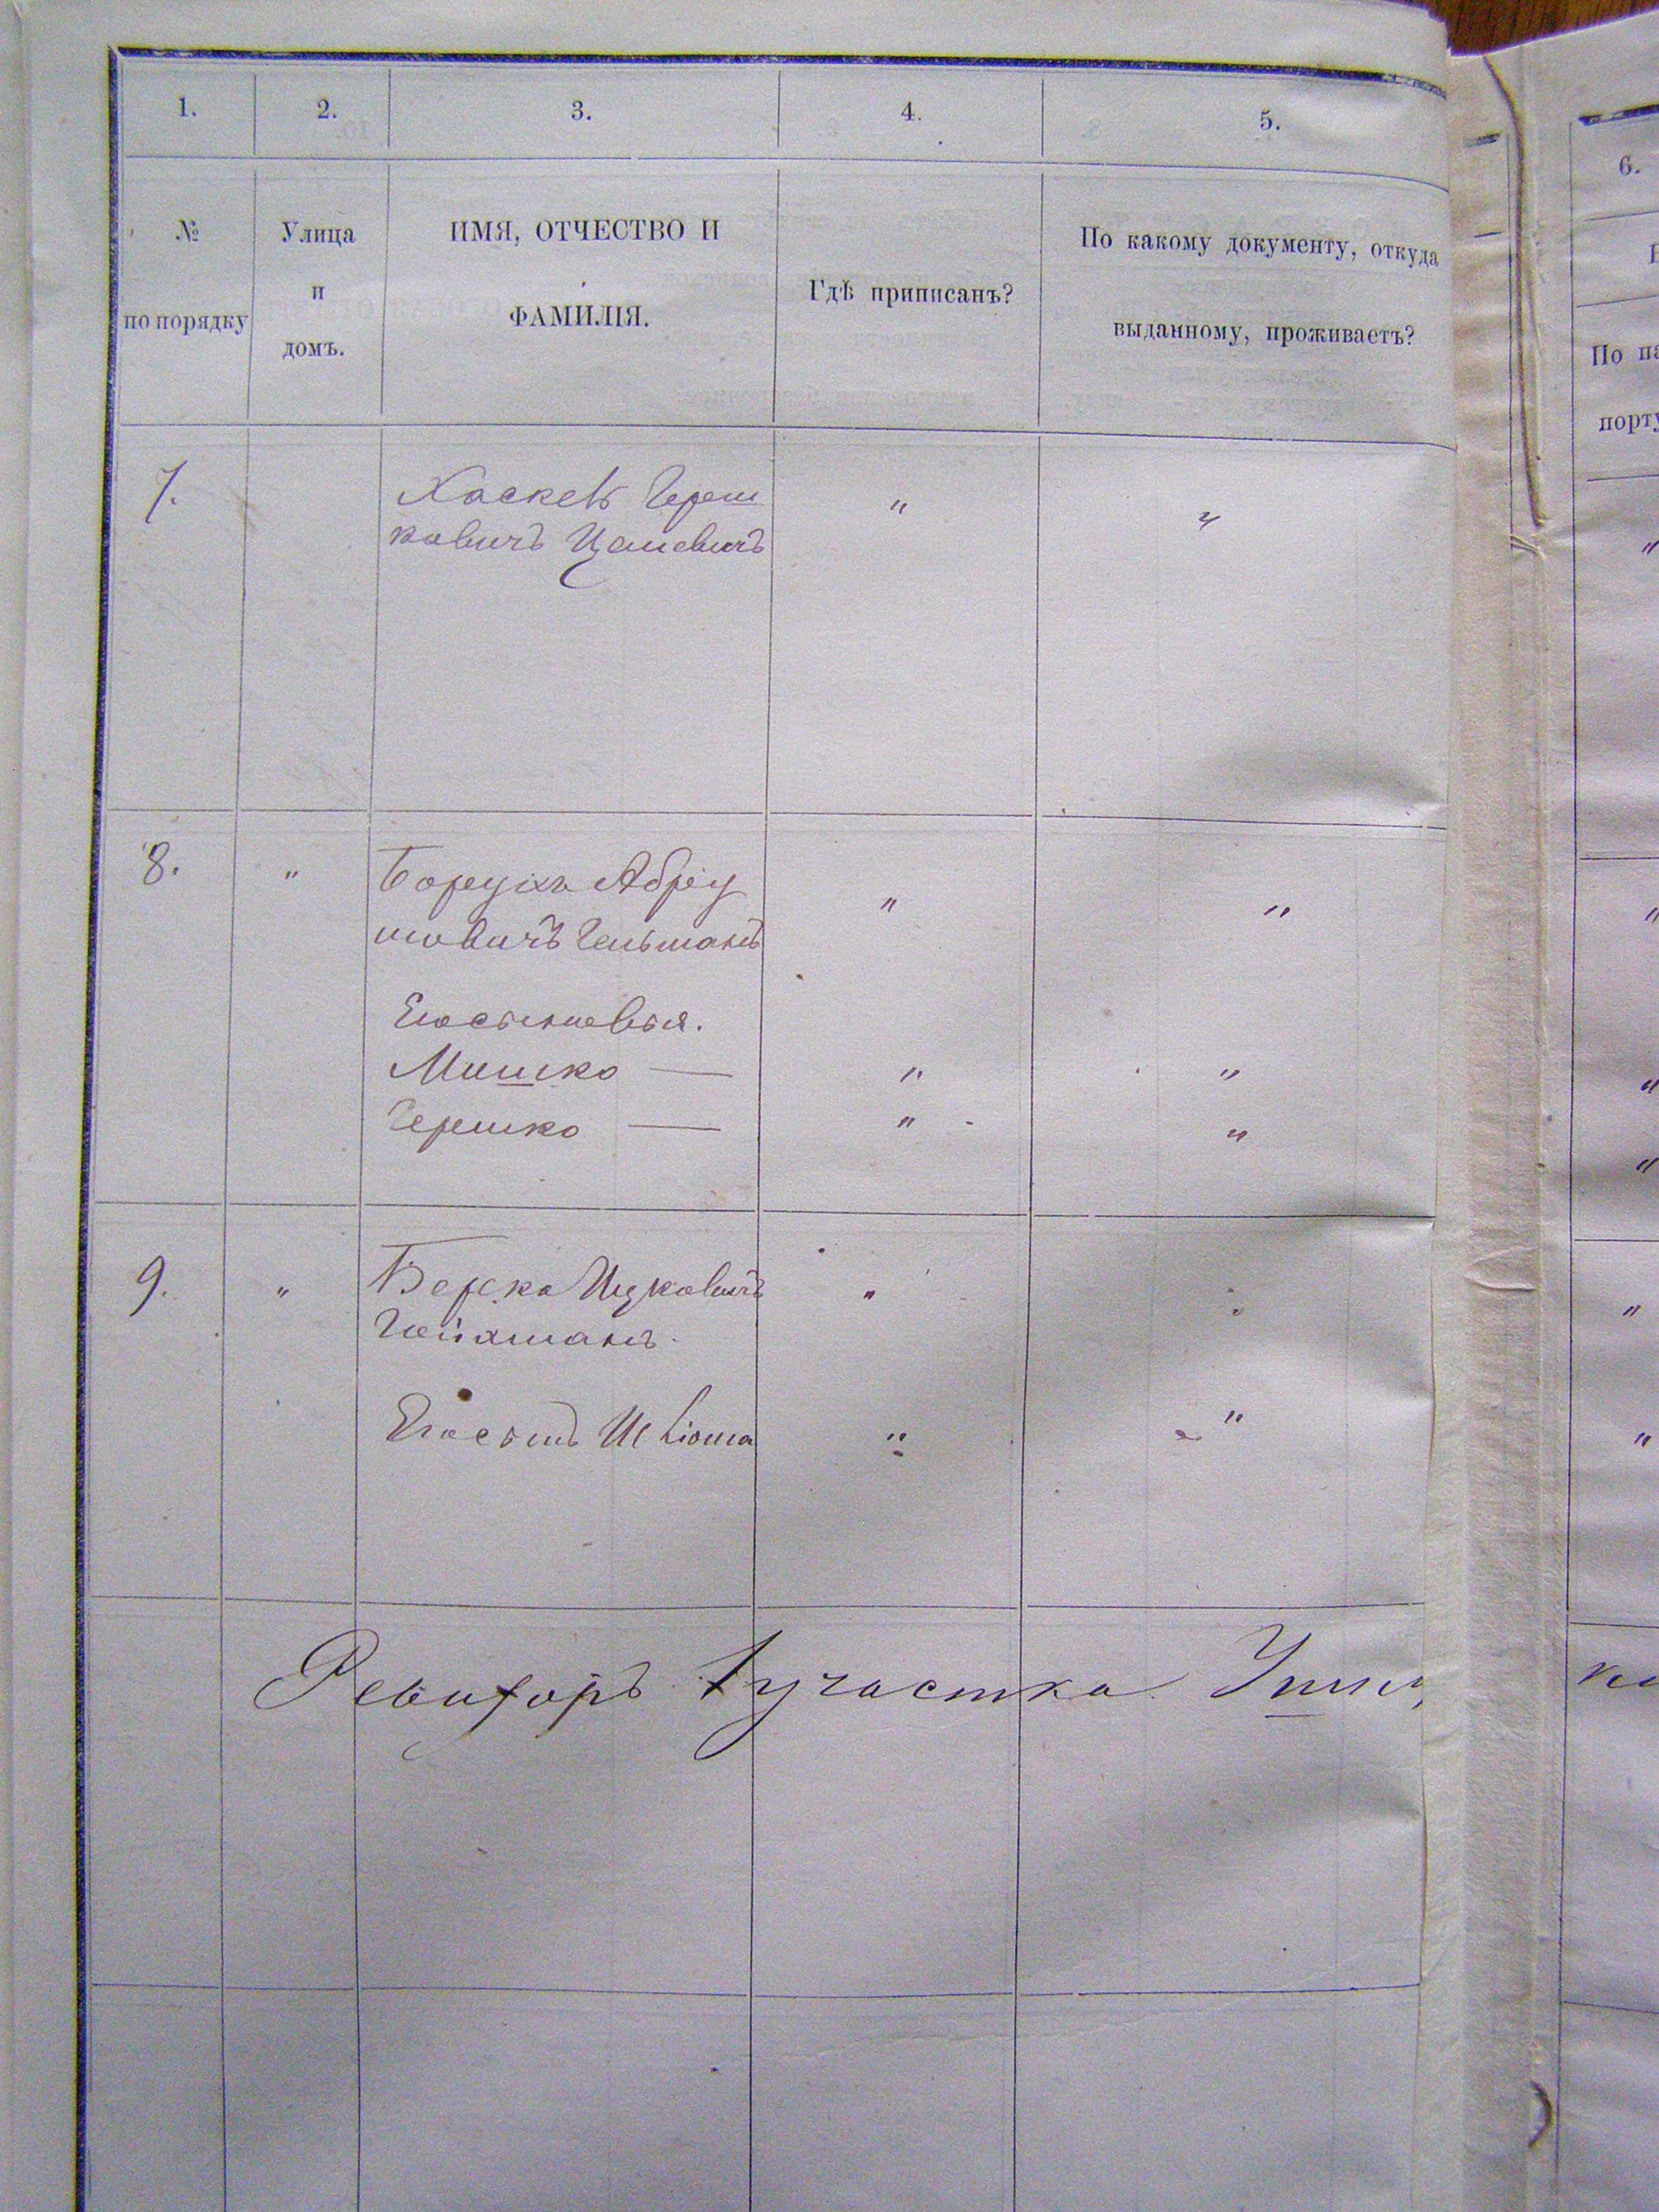 1. 2. 3. 4. 5.
№
по порядку
Улица
и
домъ.
ИМЯ, ОТЧЕСТВО И
ФАМИЛІЯ.
Гдѣ приписанъ?
По какому документу, откуда
выданному, проживаетъ?
7. Хаскель Герш " "
ковичъ
8. " Борухъ Абру " "
мовичъ Гельманъ
Его сыновья.
Мошко — " "
Гершко — " "
9. " Берка Ицковичъ " "
Гойхманъ.
Его сынъ Шліома " "
Ревизоръ 1 участка
6.
По па
порту
"
"
"
"
"
"